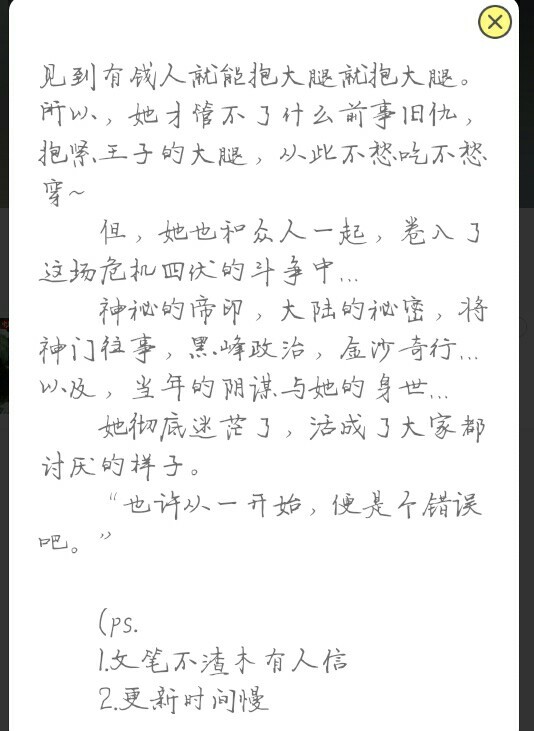 见到有钱人就能抱大腿就抱大腿。
所以，她才管不了什么前事旧仇，
抱紧王子的大腿，从此不愁吃不愁
穿~
但，她也和众人一起，卷入了
这场危机四伏的斗争中...
神秘的帝印，大陆的秘密，将
神门往事，黑峰政治，金沙奇行...
以及，当年的阴谋与她的身世...
她彻底迷茫了，活成了大家都
讨厌的样子。
“也许从一开始，便是个错误
吧。”
(ps.
1.文笔不渣木有人信
2.更新时间慢